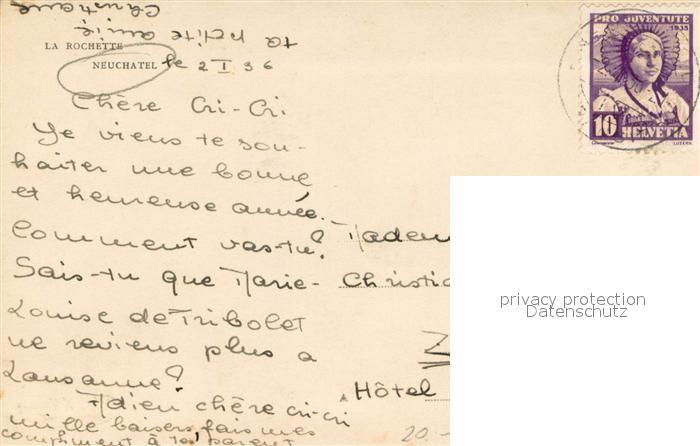 ta petite amie
Christiane
LA ROCHETTE
NEUCHATEL le 2 I 36
Chère Cri-Cri
Je viens te sou-
haiter une bonne
et heureuse année.
Comment vas-tu?
Sais-tu que Marie-
Louise de Tribolet
ne reviens plus a
Lausanne?
Adieu chère cri-cri
mille baisers fais mes
compliment à tes parent
Madem
Christia
Hôtel
20.-
PRO JUVENTUTE
1933
10 HELVETIA
privacy protection
Datenschutz